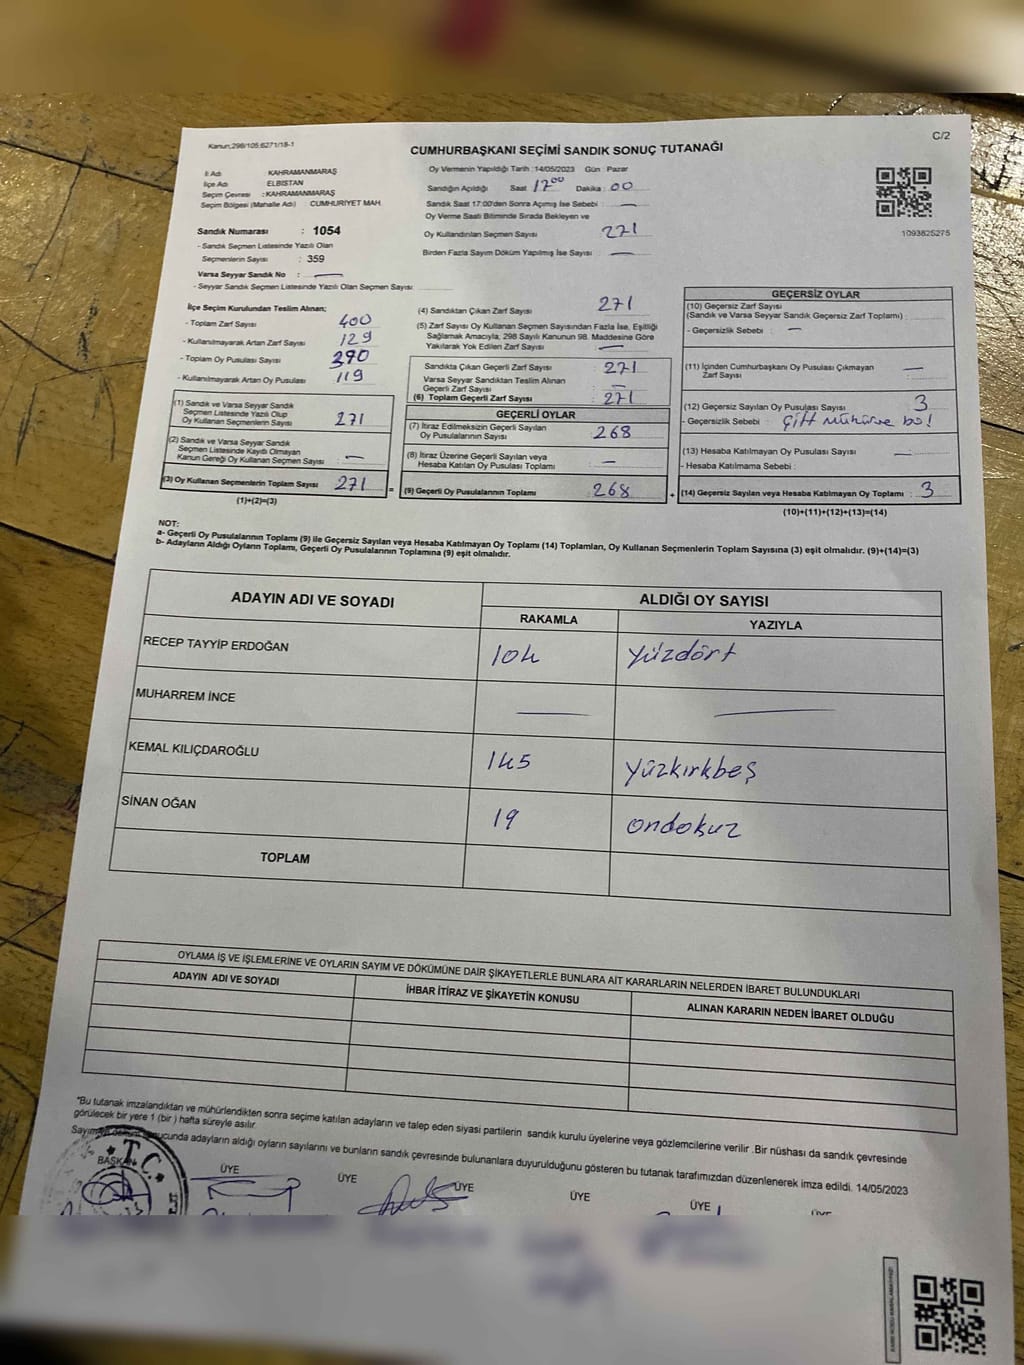 Kanun;298/105;6271/18-1
C/2
CUMHURBAŞKANI SEÇİMİ SANDIK SONUÇ TUTANAĞI
İl Adı : KAHRAMANMARAŞ
İlçe Adı : ELBİSTAN
Seçim Çevresi : KAHRAMANMARAŞ
Seçim Bölgesi (Mahalle Adı) : CUMHURİYET MAH.
Sandık Numarası : 1054
- Sandık Seçmen Listesinde Yazılı Olan
Seçmenlerin Sayısı : 359
Varsa Seyyar Sandık No : —
- Seyyar Sandık Seçmen Listesinde Yazılı Olan Seçmen Sayısı:
Oy Vermenin Yapıldığı Tarih :14/05/2023 Gün : Pazar
Sandığın Açıldığı Saat 17:00 Dakika : 00
Sandık Saat 17:00'den Sonra Açımış İse Sebebi : —
Oy Verme Saati Bitiminde Sırada Bekleyen ve
Oy Kullandırılan Seçmen Sayısı : 271
Birden Fazla Sayım Döküm Yapılmış İse Sayısı : —
1093825275
İlçe Seçim Kurulundan Teslim Alınan;
- Toplam Zarf Sayısı : 400
- Kullanılmayarak Artan Zarf Sayısı : 129
- Toplam Oy Pusulası Sayısı : 390
- Kullanılmayarak Artan Oy Pusulası : 119
(1) Sandık ve Varsa Seyyar Sandık
Seçmen Listesinde Yazılı Olup
Oy Kullanan Seçmenlerin Sayısı : 271
(2) Sandık ve Varsa Seyyar Sandık
Seçmen Listesinde Kaydı Olmayan
Kanun Gereği Oy Kullanan Seçmen Sayısı : —
(3) Oy Kullanan Seçmenlerin Toplam Sayısı : 271
(1)+(2)=(3)
(4) Sandıktan Çıkan Zarf Sayısı : 271
(5) Zarf Sayısı Oy Kullanan Seçmen Sayısından Fazla İse, Eşitliği
Sağlamak Amacıyla; 298 Sayılı Kanunun 98. Maddesine Göre
Yakılarak Yok Edilen Zarf Sayısı : —
Sandıkta Çıkan Geçerli Zarf Sayısı : 271
Varsa Seyyar Sandıktan Teslim Alınan
Geçerli Zarf Sayısı : —
(6) Toplam Geçerli Zarf Sayısı : 271
GEÇERLİ OYLAR
(7) İtiraz Edilmeksizin Geçerli Sayılan
Oy Pusulalarının Sayısı : 268
(8) İtiraz Üzerine Geçerli Sayılan veya
Hesaba Katılan Oy Pusulası Toplamı : —
= (9) Geçerli Oy Pusulalarının Toplamı : 268
GEÇERSİZ OYLAR
(10) Geçersiz Zarf Sayısı
(Sandık ve Varsa Seyyar Sandık Geçersiz Zarf Toplamı) :
- Geçersizlik Sebebi : —
(11) İçinden Cumhurbaşkanı Oy Pusulası Çıkmayan
Zarf Sayısı : —
(12) Geçersiz Sayılan Oy Pusulası Sayısı : 3
- Geçersizlik Sebebi : Çift mühür ve boş
(13) Hesaba Katılmayan Oy Pusulası Sayısı : —
- Hesaba Katılmama Sebebi :
+ (14) Geçersiz Sayılan veya Hesaba Katılmayan Oy Toplamı : 3
(10)+(11)+(12)+(13)=(14)
NOT:
a- Geçerli Oy Pusulalarının Toplamı (9) ile Geçersiz Sayılan veya Hesaba Katılmayan Oy Toplamı (14) Toplamları, Oy Kullanan Seçmenlerin Toplam Sayısına (3) eşit olmalıdır. (9)+(14)=(3)
b- Adayların Aldığı Oyların Toplamı, Geçerli Oy Pusulalarının Toplamına (9) eşit olmalıdır.
ADAYIN ADI VE SOYADI
ALDIĞI OY SAYISI
RAKAMLA YAZIYLA
RECEP TAYYİP ERDOĞAN 104 Yüzdört
MUHARREM İNCE — —
KEMAL KILIÇDAROĞLU 145 Yüzkırkbeş
SİNAN OĞAN 19 ondokuz
TOPLAM
OYLAMA İŞ VE İŞLEMLERİNE VE OYLARIN SAYIM VE DÖKÜMÜNE DAİR ŞİKAYETLERLE BUNLARA AİT KARARLARIN NELERDEN İBARET BULUNDUKLARI
ADAYIN ADI VE SOYADI İHBAR İTİRAZ VE ŞİKAYETİN KONUSU ALINAN KARARIN NEDEN İBARET OLDUĞU
*Bu tutanak imzalandıktan ve mühürlendikten sonra seçime katılan adayların ve talep eden siyasi partilerin sandık kurulu üyelerine veya gözlemcilerine verilir .Bir nüshası da sandık çevresinde
görülecek bir yere 1 (bir ) hafta süreyle asılır.
sonucunda adayların aldığı oyların sayılarını ve bunların sandık çevresinde bulunanlara duyurulduğunu gösteren bu tutanak tarafımızdan düzenlenerek imza edildi. 14/05/2023
T.C.
BAŞKAN ÜYE ÜYE ÜYE ÜYE ÜYE ÜYE